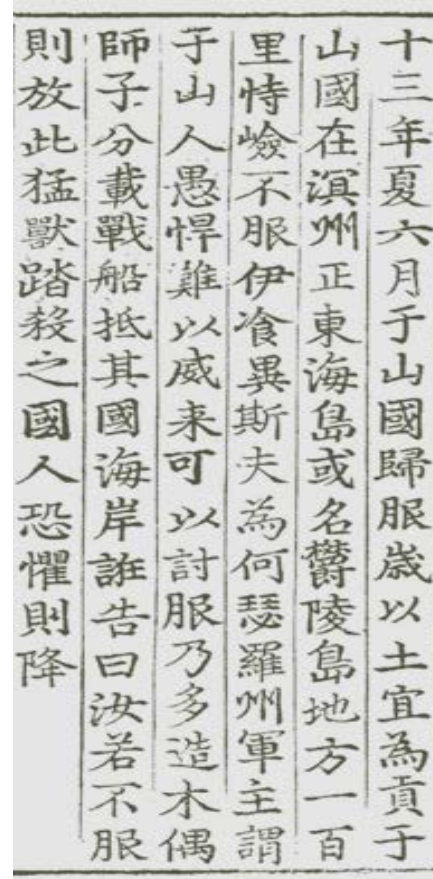 十三年夏六月于山國歸服歲以土宜為貢于
山國在溟州正東海島或名欝陵島地方一百
里恃嶮不服伊飡異斯夫為何瑟羅州軍主謂
于山人愚悍難以威来可以討服乃多造木偶
師子分載戰船抵其國海岸誑告曰汝若不服
則放此猛獸踏殺之國人恐懼則降